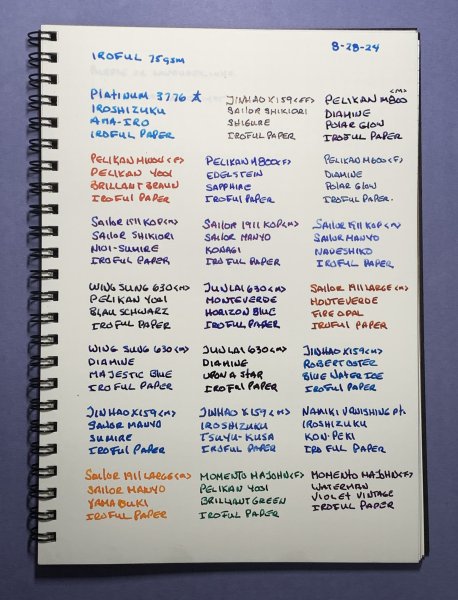 IROFUL 75gsm
8-28-24
PLATINUM 3776
IROSHIZUKU
AMA-IRO
IROFUL PAPER
JINHAO X159 <EF>
SAILOR SHIKIORI
SHIGURE
IROFUL PAPER
<M>
PELIKAN M800
DIAMINE
POLAR GLOW
IROFUL PAPER
PELIKAN M1000 <F>
PELIKAN 4001
BRILLANT BRAUN
IROFUL PAPER
PELIKAN M800 <F>
EDELSTEIN
SAPPHIRE
IROFUL PAPER
PELIKAN M600 <F>
DIAMINE
POLAR GLOW
IROFUL PAPER.
SAILOR 1911 KOP <M>
SAILOR SHIKIORI
NIOI-SUMIRE
IROFUL PAPER
SAILOR 1911 KOP <M>
SAILOR MANYO
KONAGI
IROFUL PAPER
SAILOR 1911 KOP <M>
SAILOR MANYO
NADESHIKO
IROFUL PAPER
WING SUNG 630 <M>
PELIKAN 4001
BLAU SCHWARZ
IROFUL PAPER
JUNLAI 630 <M>
MONTEVERDE
HORIZON BLUE
IROFUL PAPER
SAILOR 1911 LARGE <M>
MONTEVERDE
FIRE OPAL
IROFUL PAPER
WING SUNG 630 <M>
DIAMINE
MAJESTIC BLUE
IROFUL PAPER
JUNLAI 630 <M>
DIAMINE
UPON A STAR
IROFUL PAPER
JINHAO X159 <M>
ROBERT OSTER
BLUE WATER ICE
IROFUL PAPER
JINHAO X159 <M>
SAILOR MANYO
SUMIRE
IROFUL PAPER
JINHAO X159 <M>
IROSHIZUKU
TSUYU-KUSA
IROFUL PAPER
NAMIKI VANISHING Pt.
IROSHIZUKU
KON-PEKI
IROFUL PAPER
SAILOR 1911 LARGE <M>
SAILOR MANYO
YAMABUKI
IROFUL PAPER
MOMENTO MAJOHN <F>
PELIKAN 4001
BRILLIANT GREEN
IROFUL PAPER
MOMENTO MAJOHN <F>
WATERMAN
VIOLET VINTAGE
IROFUL PAPER